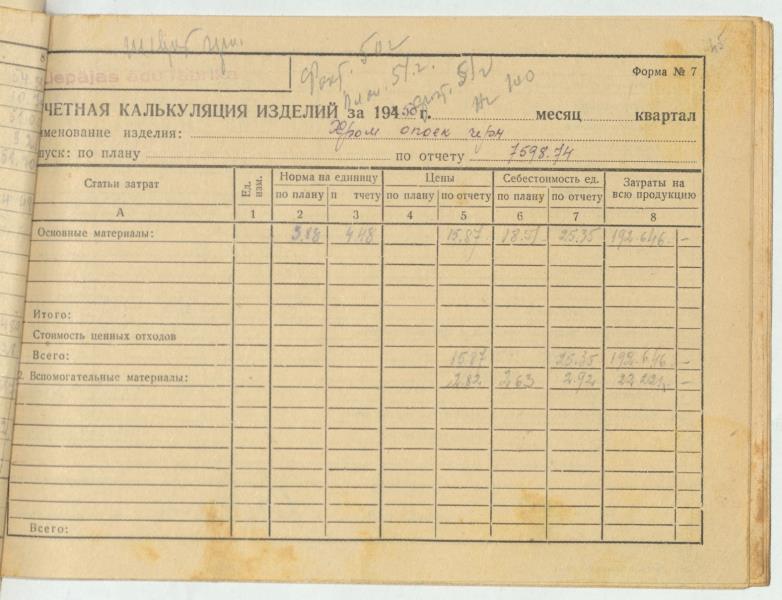 45
Liepājas ādu fabrika
Форма № 7
ЧЕТНАЯ КАЛЬКУЛЯЦИЯ ИЗДЕЛИЙ за 1950 г. месяц квартал
именование изделия: Хром опоек черн
пуск: по плану по отчету 7598.74
Статьи затрат Ед. изм. Норма на единицу Цены Себестоимость ед. Затраты на всю продукцию
по плану п тчету по плану по отчету по плану по отчету
А 1 2 3 4 5 6 7 8
Основные материалы: 3.88 4.48 15.87 18.51 25.35 192.646 -
Итого:
Стоимость ценных отходов
Всего: 15.87 25.35 192.646 -
2. Вспомогательные материалы: 2.82 2.63 2.92 22 221 -
Всего: